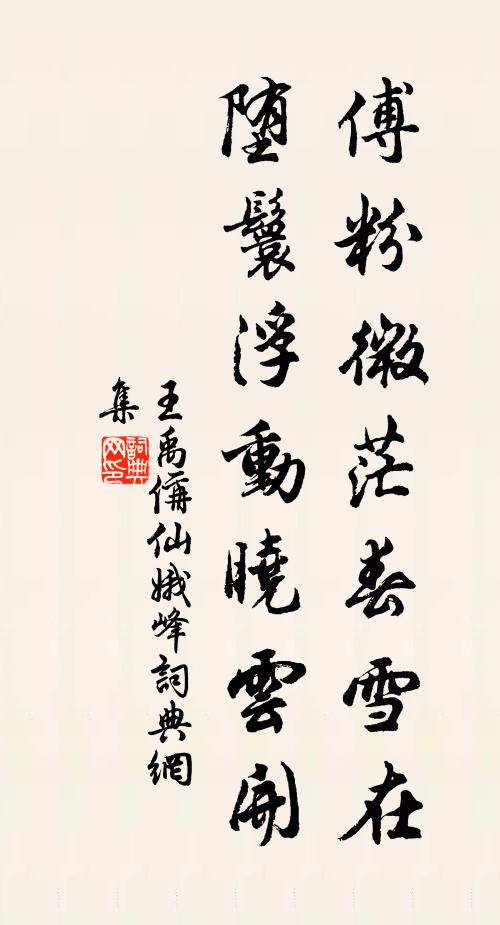 傅粉微茫春雪在
墮鬟浮動曉雲開
王禹偁仙娥峰詞典網
集
詞典
网印